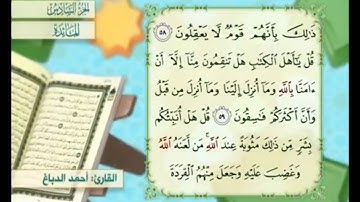 الجزء السادس
المائدة
ذَٰلِكَ بِأَنَّهُمْ قَوْمٌ لَّا يَعْقِلُونَ ٥٨
قُلْ يَٰٓأَهْلَ ٱلْكِتَٰبِ هَلْ تَنقِمُونَ مِنَّآ إِلَّآ أَنْ
ءَامَنَّا بِٱللَّهِ وَمَآ أُنزِلَ إِلَيْنَا وَمَآ أُنزِلَ مِن قَبْلُ
وَأَنَّ أَكْثَرَكُمْ فَٰسِقُونَ ٥٩ قُلْ هَلْ أُنَبِّئُكُم
بِشَرٍّ مِّن ذَٰلِكَ مَثُوبَةً عِندَ ٱللَّهِ ۚ مَن لَّعَنَهُ ٱللَّهُ
وَغَضِبَ عَلَيْهِ وَجَعَلَ مِنْهُمُ ٱلْقِرَدَةَ
القارئ: أحمد الدباغ